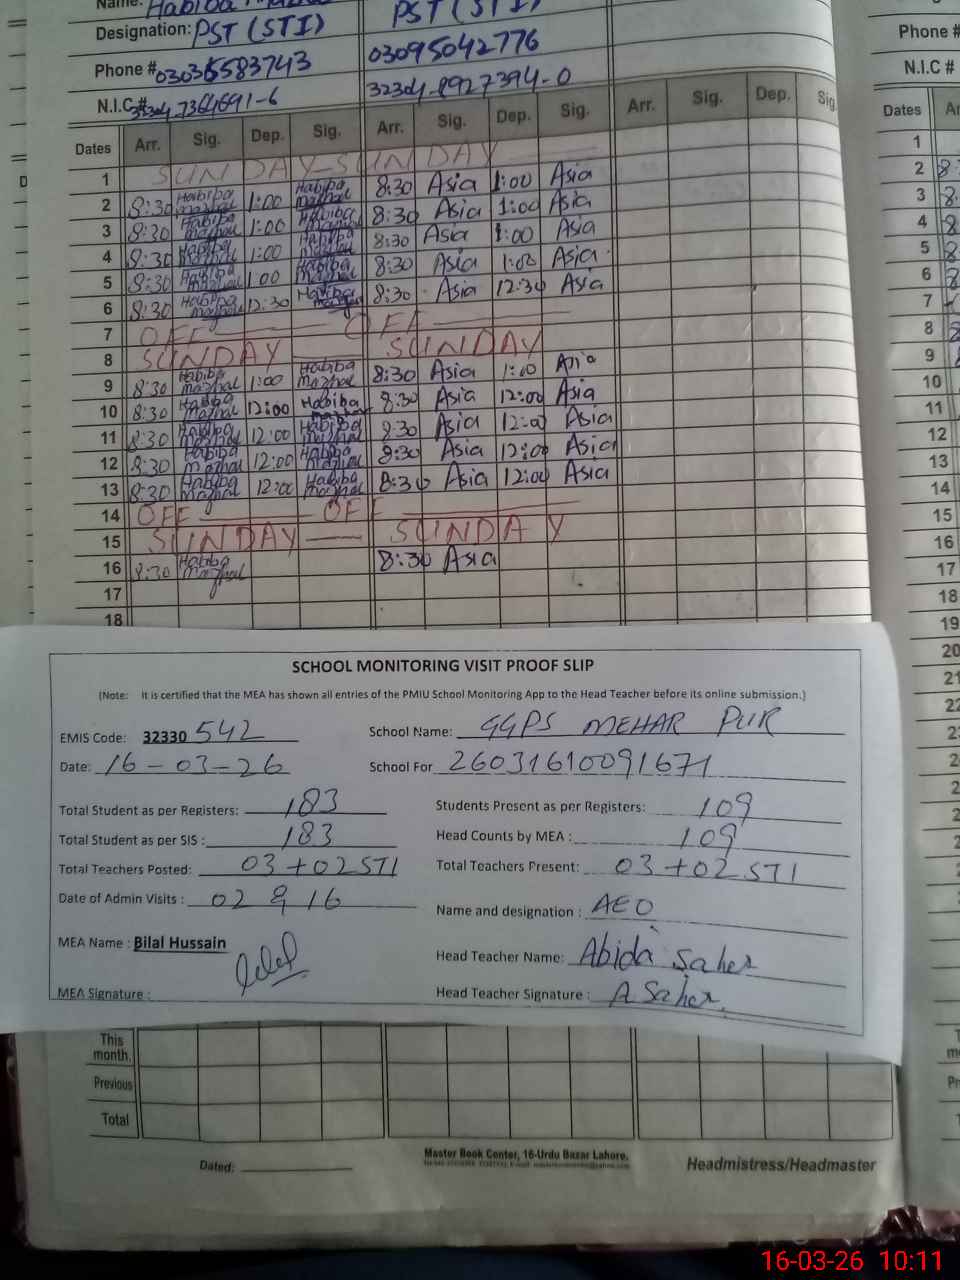 Name: Habiba
Designation: PST (STI) PST (STI)
Phone # 03036583743 03095042776 Phone #
N.I.C # 32304-7364691-6 32304-8927394-0 N.I.C #
Dates Arr. Sig. Dep. Sig. Arr. Sig. Dep. Sig. Arr. Sig. Dep. Sig. Dates
1 SUNDAY-SUNDAY 1
2 8:30 Habiba Mazhal 1:00 Habiba Mazhal 8:30 Asia 1:00 Asia 2
3 8:30 Habiba Mazhal 1:00 Habiba Mazhal 8:30 Asia 1:00 Asia 3
4 8:30 Habiba Mazhal 1:00 Habiba Mazhal 8:30 Asia 1:00 Asia 4
5 8:30 Habiba Mazhal 1:00 Habiba Mazhal 8:30 Asia 1:00 Asia 5
6 8:30 Habiba Mazhal 12:30 Habiba Mazhal 8:30 Asia 12:30 Asia 6
7 OFF OFF 7
8 SUNDAY SUNDAY 8
9 8:30 Habiba Mazhal 1:00 Habiba Mazhal 8:30 Asia 1:00 Asia 9
10 8:30 Habiba Mazhal 12:00 Habiba Mazhal 8:30 Asia 12:00 Asia 10
11 8:30 Habiba Mazhal 12:00 Habiba Mazhal 8:30 Asia 12:00 Asia 11
12 8:30 Habiba Mazhal 12:00 Habiba Mazhal 8:30 Asia 12:00 Asia 12
13 8:30 Habiba Mazhal 12:00 Habiba Mazhal 8:30 Asia 12:00 Asia 13
14 OFF OFF 14
15 SUNDAY SUNDAY 15
16 8:30 Habiba Mazhal 8:30 Asia 16
17 17
18 18
19
20
21
22
23
SCHOOL MONITORING VISIT PROOF SLIP
(Note: It is certified that the MEA has shown all entries of the PMIU School Monitoring App to the Head Teacher before its online submission.)
EMIS Code: 32330 542 School Name: GGPS MEHAR PUR
Date: 16-03-26 School For 26031610091671
Total Student as per Registers: 183 Students Present as per Registers: 109
Total Student as per SIS : 183 Head Counts by MEA : 109
Total Teachers Posted: 03+02 STI Total Teachers Present: 03+02 STI
Date of Admin Visits : 02 & 16 Name and designation : AEO
MEA Name : Bilal Hussain Head Teacher Name: Abida Saher
MEA Signature : Head Teacher Signature : A Saher
This month.
Previous
Total
Dated:
Master Book Center, 16-Urdu Bazar Lahore.
Headmistress/Headmaster
16-03-26 10:11